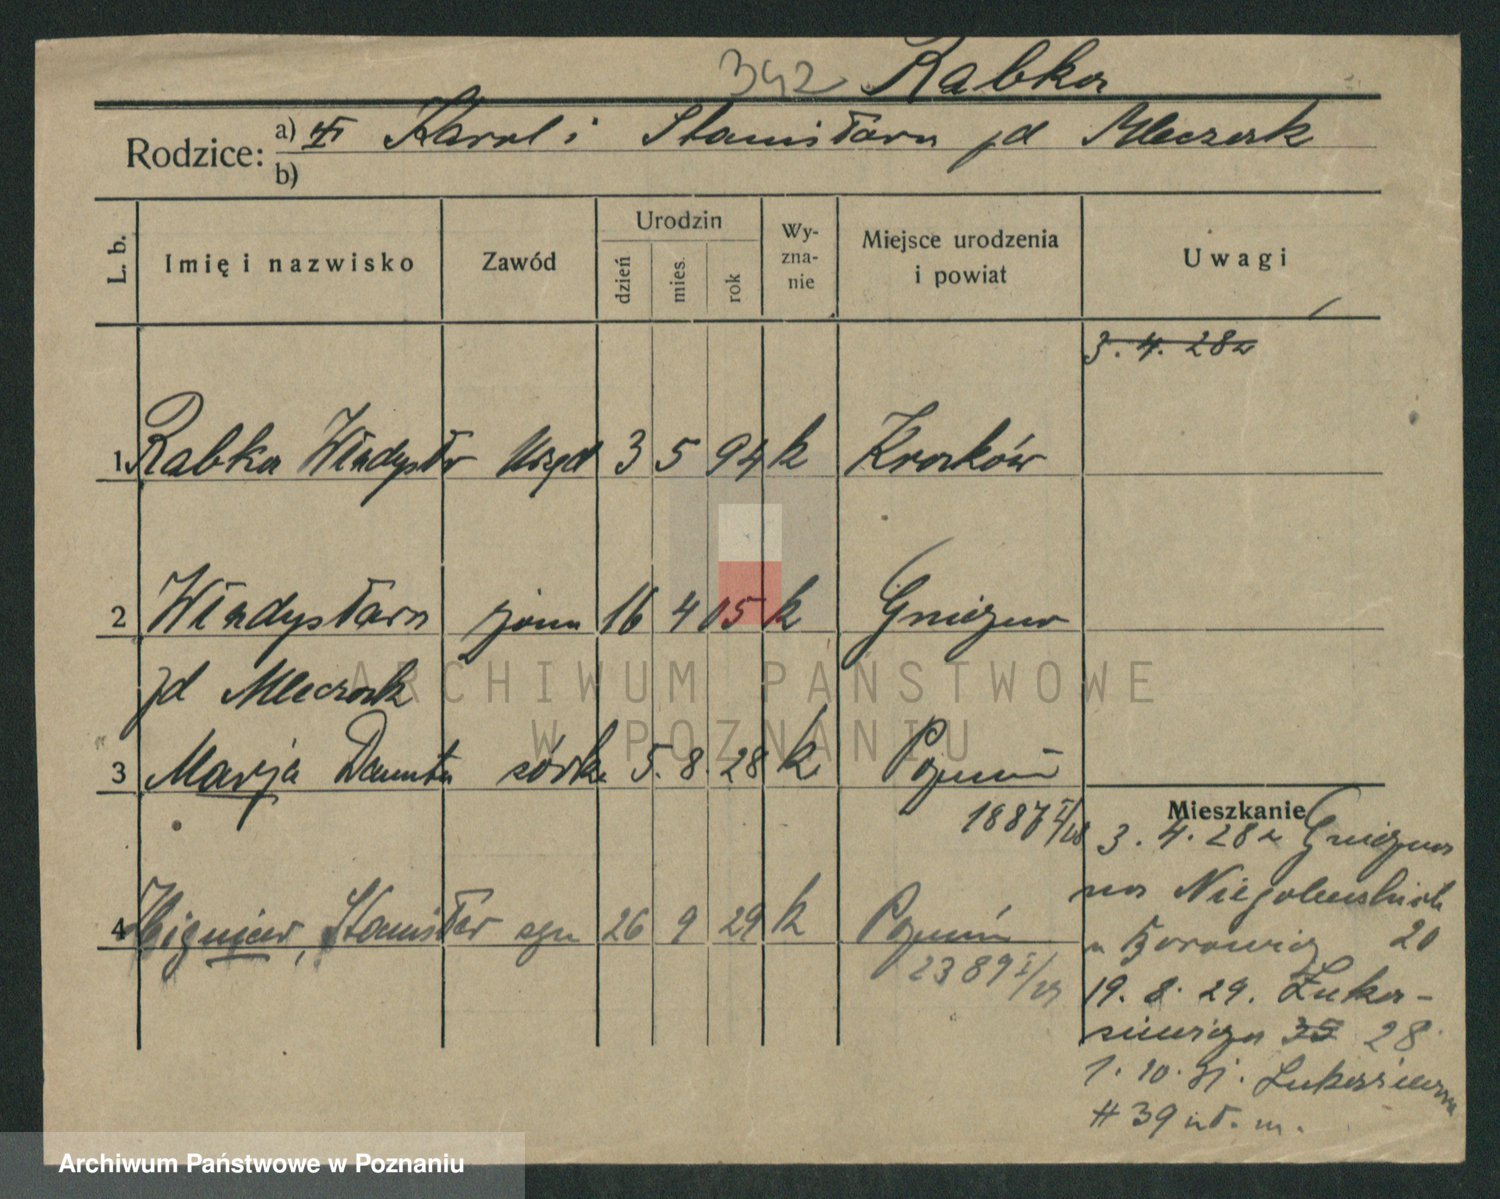 342 Rabka
Rodzice: a) Karol i Stanisława zd Mleczak
b)
L. b. Imię i nazwisko Zawód Urodzin dzień mies. rok Wy-zna-nie Miejsce urodzenia i powiat Uwagi
3. 4. 28 z
1 Rabka Władysław Urzęd 3 5 94 k Kraków
2 Władysława żona 16 4 05 k Gniezno
zd Mleczak
3 Marja Danuta córka 5. 8. 28 k Poznań
1887 I/28
Mieszkanie
3. 4. 28 z Gniezna
na Niegolewskich
u Borowicz 20
4 Zbigniew, Stanisław syn 26 9 29 k Poznań
2389 I/29
19. 8. 29. Łuka-
siewicza 35 28
1. 10. 31. Łukasiewicza
# 39 wł. m.
ARCHIWUM PAŃSTWOWE
W POZNANIU
Archiwum Państwowe w Poznaniu